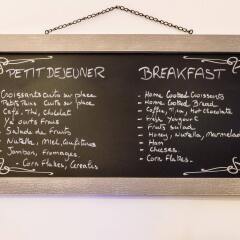 PETIT DEJEUNER
Croissants cuits sur place
Petits Pains Cuits sur place
Café, Thé, Chocolat
Yaourts Frais
- Salade de Fruits
- Nutella, Miel, Confitures
- Jambon, Fromages
- Corn Flakes, Céréales
BREAKFAST
- Home Cooked Croissants
- Home Cooked Bread
- Coffee, Tea, Hot chocolate
- Fresh Yougourt
- Fruits salad
- Honey, Nutella, Marmelade
- Ham
- Cheeses
- Corn Flakes.